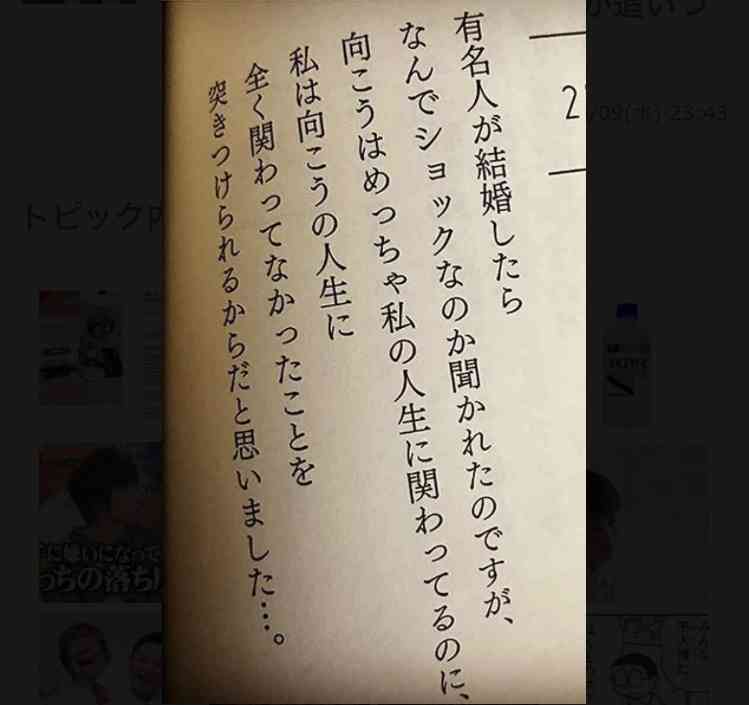 有名人が結婚したら
なんでショックなのか聞かれたのですが、
向こうはめっちゃ私の人生に関わってるのに、
私は向こうの人生に
全く関わってなかったことを
突きつけられるからだと思いました…。
2
/09(水) 23:43
トピックP
が追いつ
に嫌いになって
っちの落ち